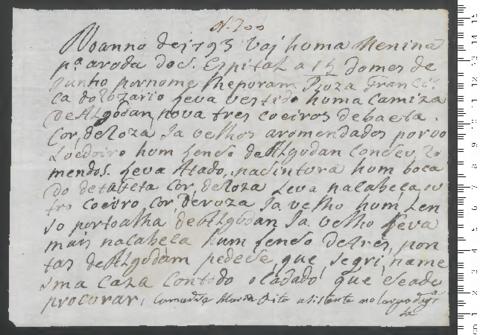 N. 700
No anno de 1795 Vai huma Menina
pª a roda do S. Espital a 15 do mes de
Junho por nome lhe poram Roza Francis
ca do Rozario Leva vestido huma Camiza
de Algodan nova tres coeiros de baeta
Cor, de Roza Ja velhos a Romendados por ro
hum Lenso de Algodan Com seu, Ro
mendos. Leva Atado, na cintura hum boca
do de tabeta Cor, de Roza Leva na cabeca, ou
tro coeiro, cor de roza Ja velho hum Len
so por toalha de Algodan Ja velho Leva
mais na cabeca hum Lenso de tres, pon
tas de Algodam pedese que se cri, na me
sma Caza Com todo o Cadado, que se a de
procurar,